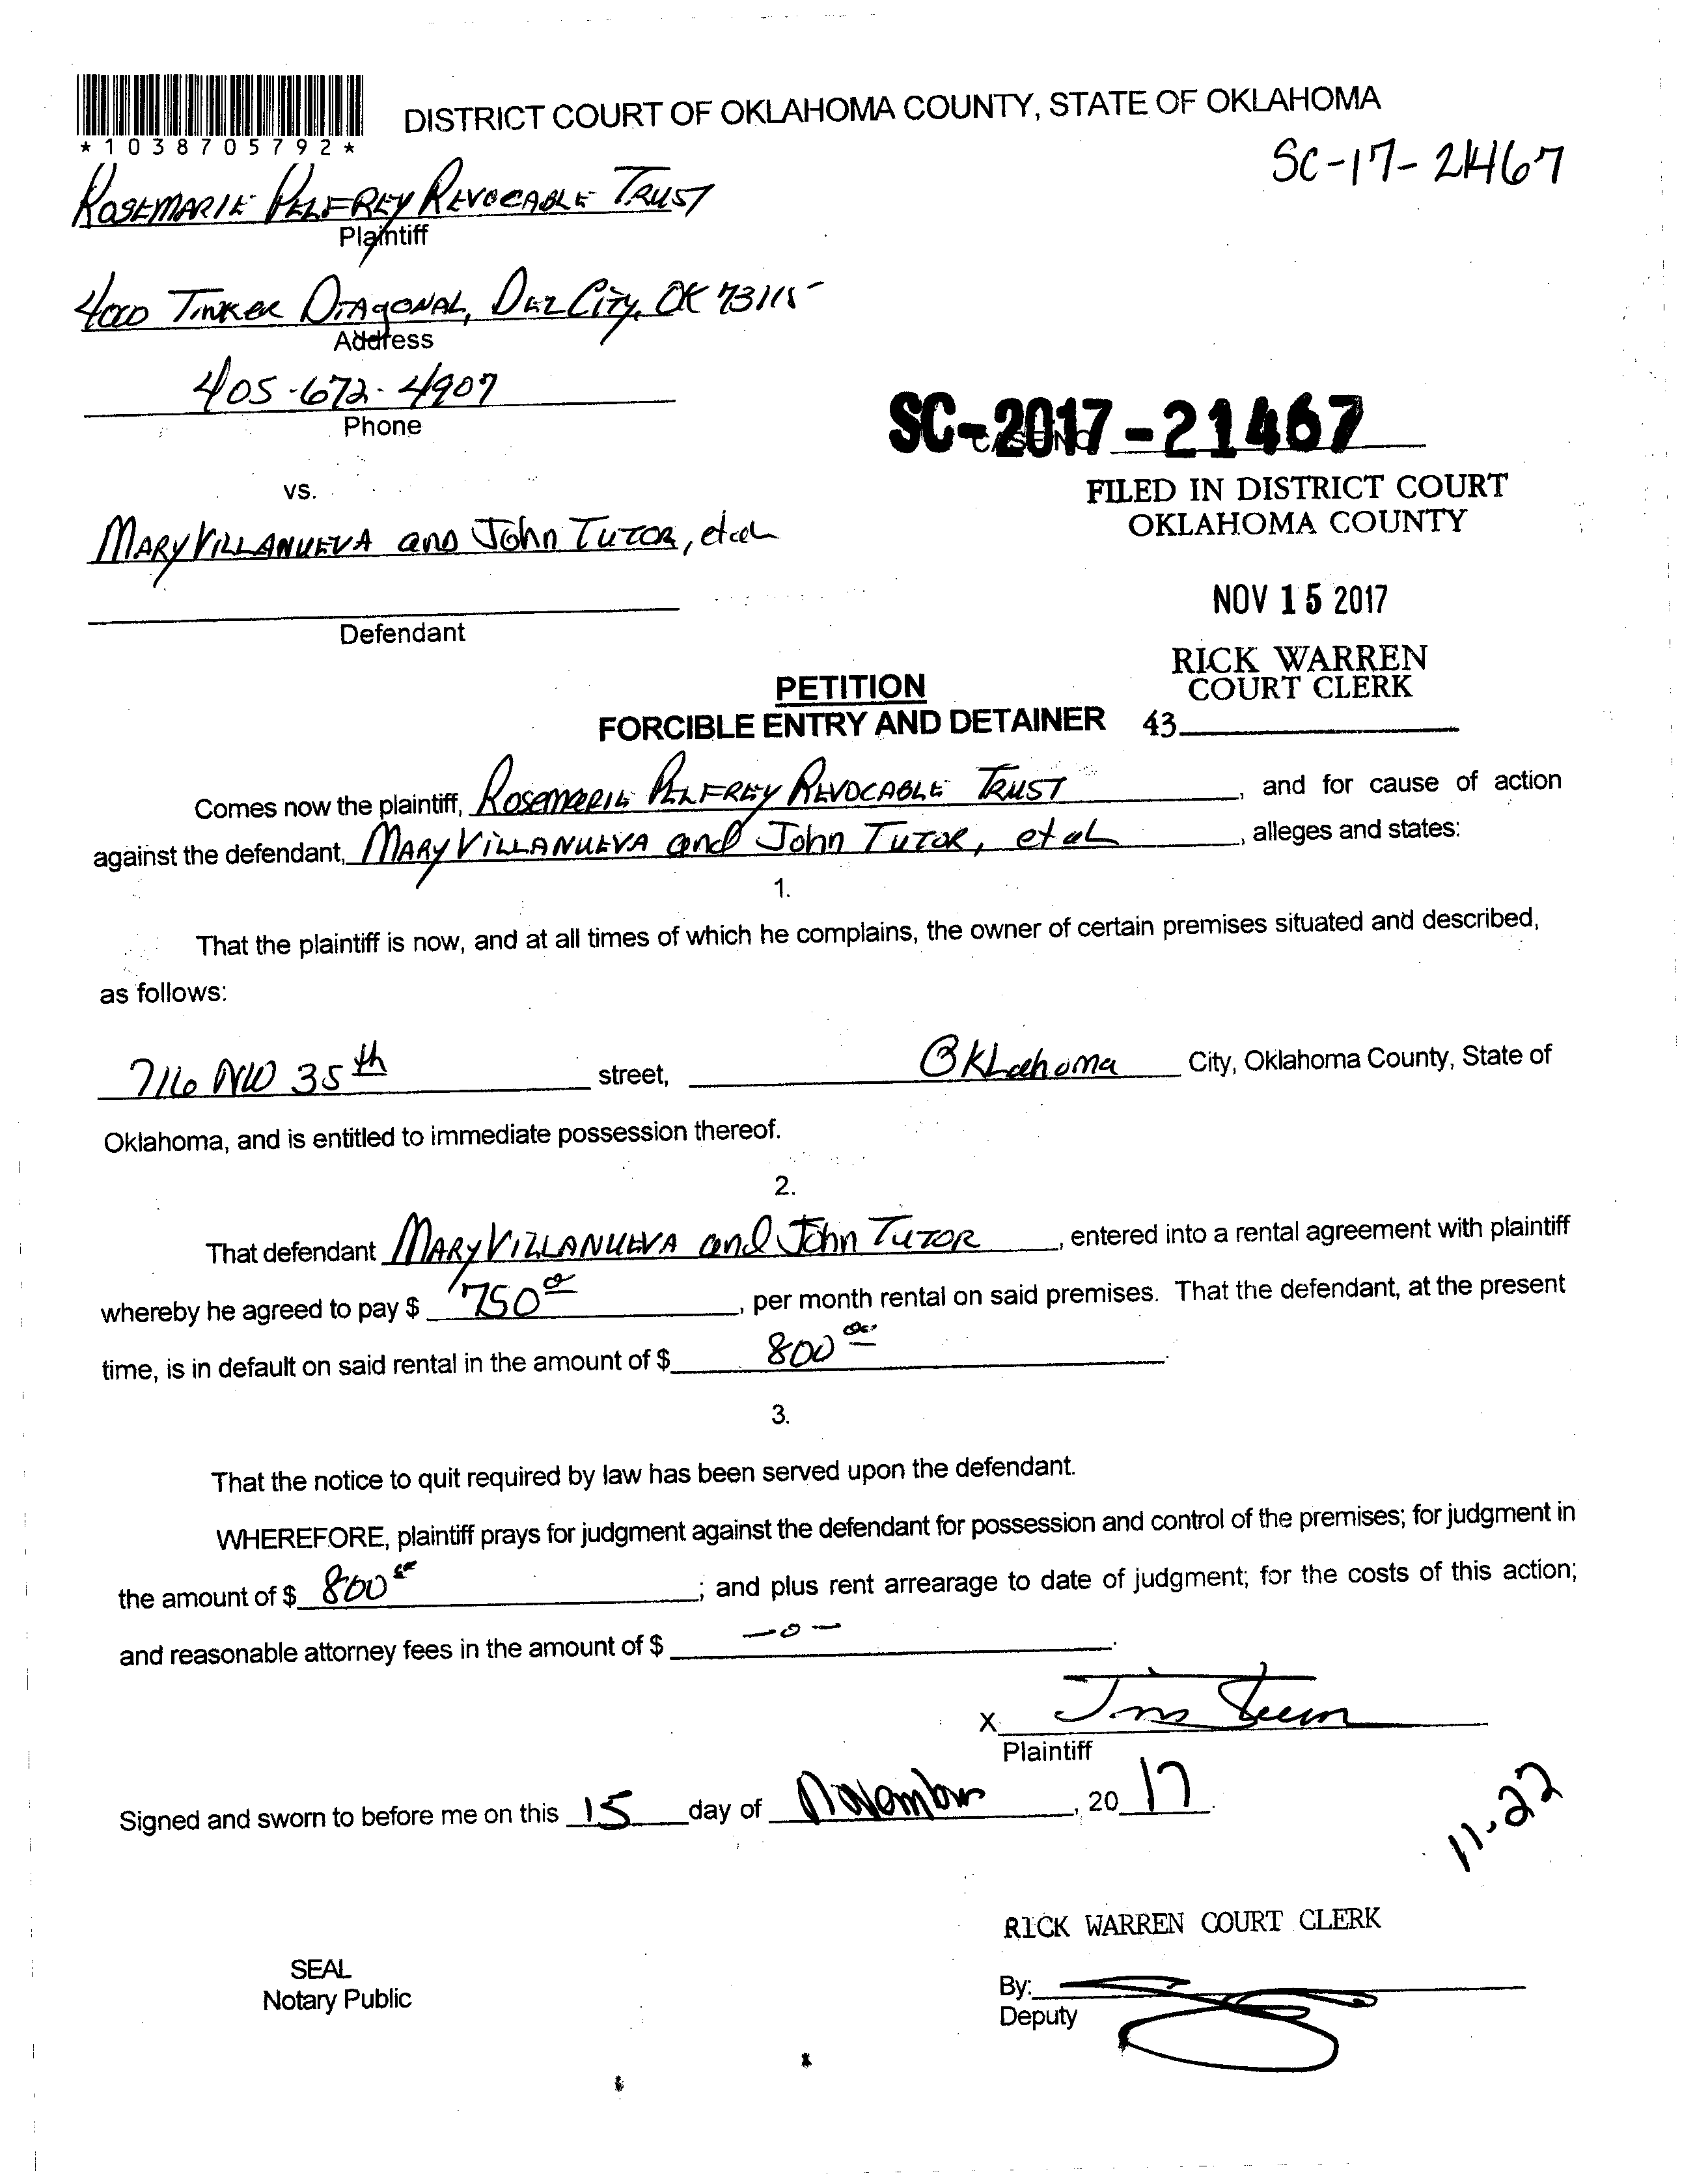 DISTRICT COURT OF OKLAHOMA COUNTY, STATE OF OKLAHOMA
*1038705792*
SC-17-21467
ROSEMARIE PELFREY REVOCABLE TRUST
Plaintiff
4000 TINKER DIAGONAL, DEL CITY, OK 73115
Address
405-672-4907
Phone
SC-2017-21467
CASE NO.
vs.
FILED IN DISTRICT COURT
OKLAHOMA COUNTY
MARY VILLANUEVA and John TUTOR, et al
NOV 15 2017
Defendant
RICK WARREN
COURT CLERK
PETITION
FORCIBLE ENTRY AND DETAINER
43
Comes now the plaintiff, ROSEMARIE PELFREY REVOCABLE TRUST, and for cause of action
against the defendant, MARY VILLANUEVA and John TUTOR, et al, alleges and states:
1.
That the plaintiff is now, and at all times of which he complains, the owner of certain premises situated and described,
as follows:
716 NW 35th street, Oklahoma City, Oklahoma County, State of
Oklahoma, and is entitled to immediate possession thereof.
2.
That defendant MARY VILLANUEVA and John TUTOR, entered into a rental agreement with plaintiff
whereby he agreed to pay $ 750 00, per month rental on said premises. That the defendant, at the present
time, is in default on said rental in the amount of $ 800 00.
3.
That the notice to quit required by law has been served upon the defendant.
WHEREFORE, plaintiff prays for judgment against the defendant for possession and control of the premises; for judgment in
the amount of $ 800 00; and plus rent arrearage to date of judgment; for the costs of this action;
and reasonable attorney fees in the amount of $ -0-.
X
Plaintiff
Signed and sworn to before me on this 15 day of November, 20 17.
11-22
RICK WARREN COURT CLERK
SEAL
Notary Public
By:
Deputy